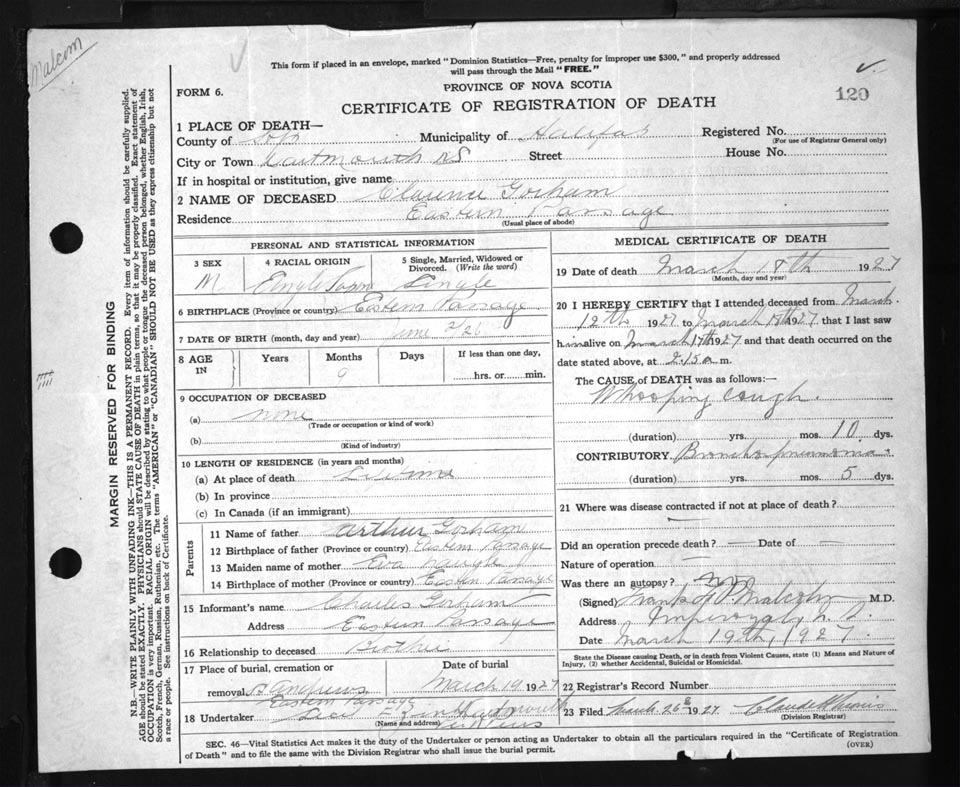 Malcom
This form if placed in an envelope, marked "Dominion Statistics—Free, penalty for improper use $300," and properly addressed
will pass through the Mail "FREE."
FORM 6.
PROVINCE OF NOVA SCOTIA
120
CERTIFICATE OF REGISTRATION OF DEATH
1 PLACE OF DEATH—
County of Municipality of Halifax Registered No.
(For use of Registrar General only)
City or Town Dartmouth NS Street House No.
If in hospital or institution, give name
2 NAME OF DECEASED Clarence Gorham
Residence Eastern Passage
(Usual place of abode)
PERSONAL AND STATISTICAL INFORMATION
3 SEX 4 RACIAL ORIGIN 5 Single, Married, Widowed or
Divorced. (Write the word)
M Single
6 BIRTHPLACE (Province or county) Estern Passage
7 DATE OF BIRTH (month, day and year) June 2/26
8 AGE IN Years Months Days If less than one day,
9 hrs. or min.
9 OCCUPATION OF DECEASED
(a) none
(Trade or occupation or kind of work)
(b)
(Kind of industry)
10 LENGTH OF RESIDENCE (in years and months)
(a) At place of death Life time
(b) In province
(c) In Canada (if an immigrant)
Parents
11 Name of father Arthur Gorham
12 Birthplace of father (Province or country) Eastern Passage
13 Maiden name of mother Eva
14 Birthplace of mother (Province or country) Eastern Passage
15 Informant's name Charles Gorham
Address Eastern Passage
16 Relationship to deceased Brother
17 Place of burial, cremation or Date of burial
removal St Andrews March 19 1927
Eastern Passage
18 Undertaker Dartmouth
(Name and address)
MEDICAL CERTIFICATE OF DEATH
19 Date of death March 18th 1927
(Month, day and year)
20 I HEREBY CERTIFY that I attended deceased from March
12th 1927 to March 18th 1927 that I last saw
him alive on March 17th 1927 and that death occurred on the
date stated above, at 2.15 a m.
The CAUSE OF DEATH was as follows:—
Whooping cough.
(duration) yrs. mos. 10 dys.
CONTRIBUTORY Broncho pneumonia
(duration) yrs. mos. 5 dys.
21 Where was disease contracted if not at place of death?
Did an operation precede death? — Date of —
Nature of operation —
Was there an autopsy? No
(Signed) Frank G. P. Malcolm M.D.
Address Imperoyal, N.S.
Date March 19th, 1927.
State the Disease causing Death, or in death from Violent Causes, state (1) Means and Nature of
Injury, (2) whether Accidental, Suicidal or Homicidal.
22 Registrar's Record Number
23 Filed March 26th 1927.
(Division Registrar)
SEC. 46—Vital Statistics Act makes it the duty of the Undertaker or person acting as Undertaker to obtain all the particulars required in the "Certificate of Registration
of Death" and to file the same with the Division Registrar who shall issue the burial permit. (OVER)
MARGIN RESERVED FOR BINDING
N.B.—WRITE PLAINLY WITH UNFADING INK—THIS IS A PERMANENT RECORD. Every item of information should be carefully supplied.
AGE should be stated EXACTLY. PHYSICIANS should STATE CAUSE OF DEATH in plain terms, so that it may be properly classified. Exact statement of
OCCUPATION is very important. RACIAL ORIGIN will be described by stating to what people or tongue the deceased person belonged, whether English, Irish,
Scotch, French, German, Russian, Ruthenian, etc. The terms "AMERICAN" or "CANADIAN" SHOULD NOT BE USED as they express citizenship but not
a race or people. See instructions on back of Certificate.